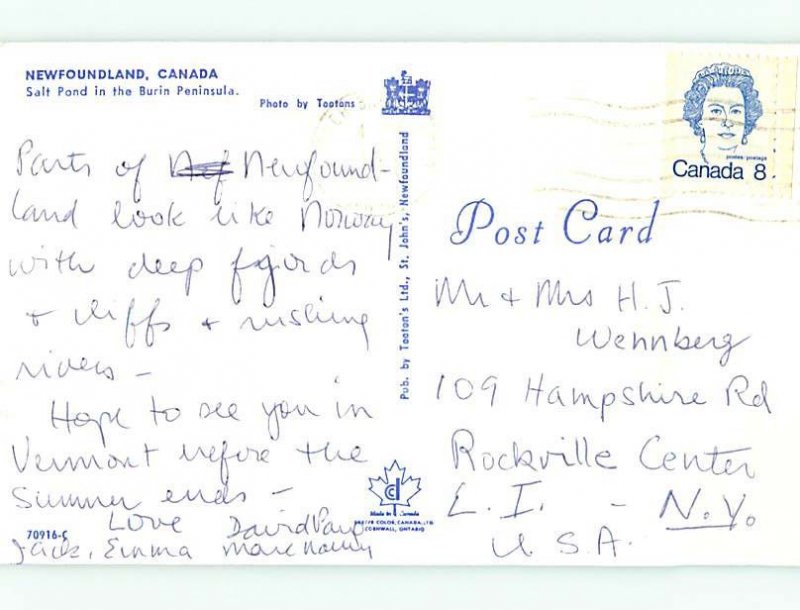 NEWFOUNDLAND, CANADA
Salt Pond in the Burin Peninsula.
Photo by Tootons
Parts of Newfound-
land look like Norway
with deep fjords
+ cliffs + rushing
rivers -
Hope to see you in
Vermont before the
Summer ends -
Love David
Jack, Emma Marc
70916-C
Pub. by Tooton's Ltd., St. John's, Newfoundland
Made in Canada
COLOR, CANADA, LTD.
CORNWALL, ONTARIO
postes-postage
Canada 8
Post Card
Mr + Mrs H. J.
Wennberg
109 Hampshire Rd
Rockville Center
L. I. - N.Y.
U.S.A.